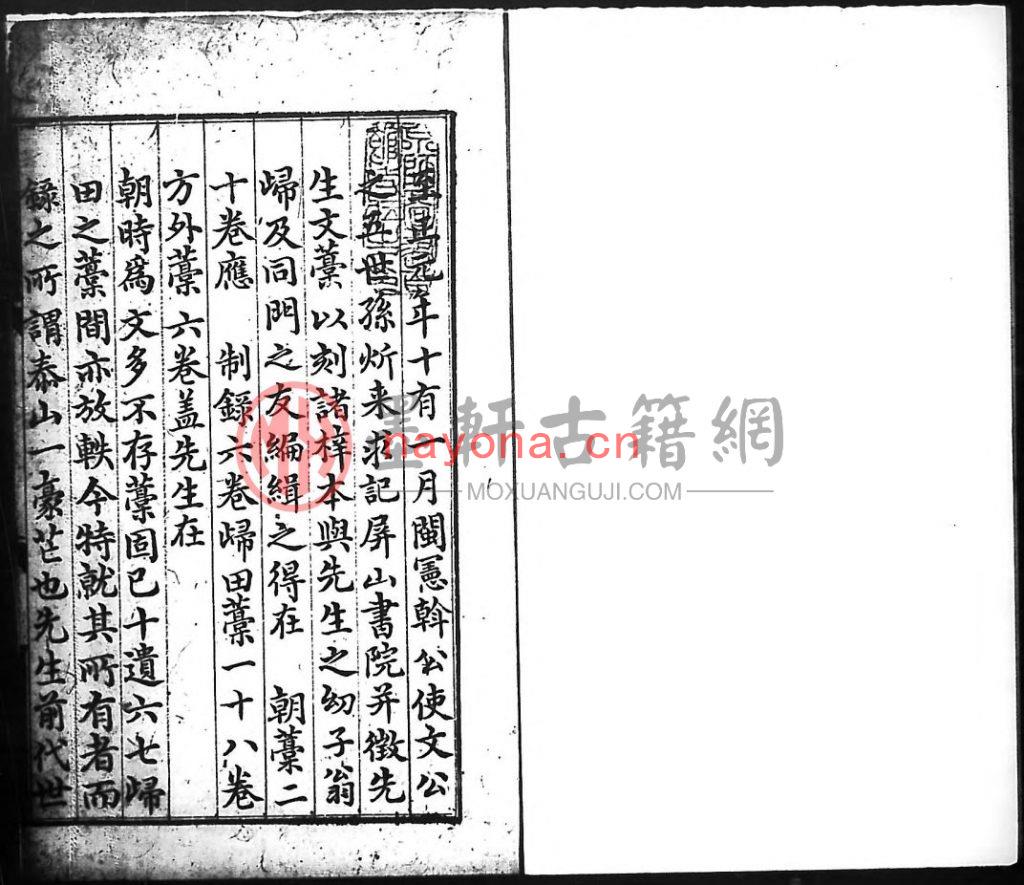 至正元年十有一月閩憲斡公使文公
之五世孫炘来求記屏山書院并徵先
生文藁以刻諸梓本與先生之㓜子翁
歸及同門之友編緝之得在　朝藁二
十卷應　制録六卷歸田藁一十八卷
方外藁六卷盖先生在
朝時爲文多不存藁固已十遺六七歸
田之藁間亦放軼今特就其所有者而
録之所謂泰山一豪芒也先生前代世
墨軒古籍網
nayona.cn
MOXUANGUJI.COM